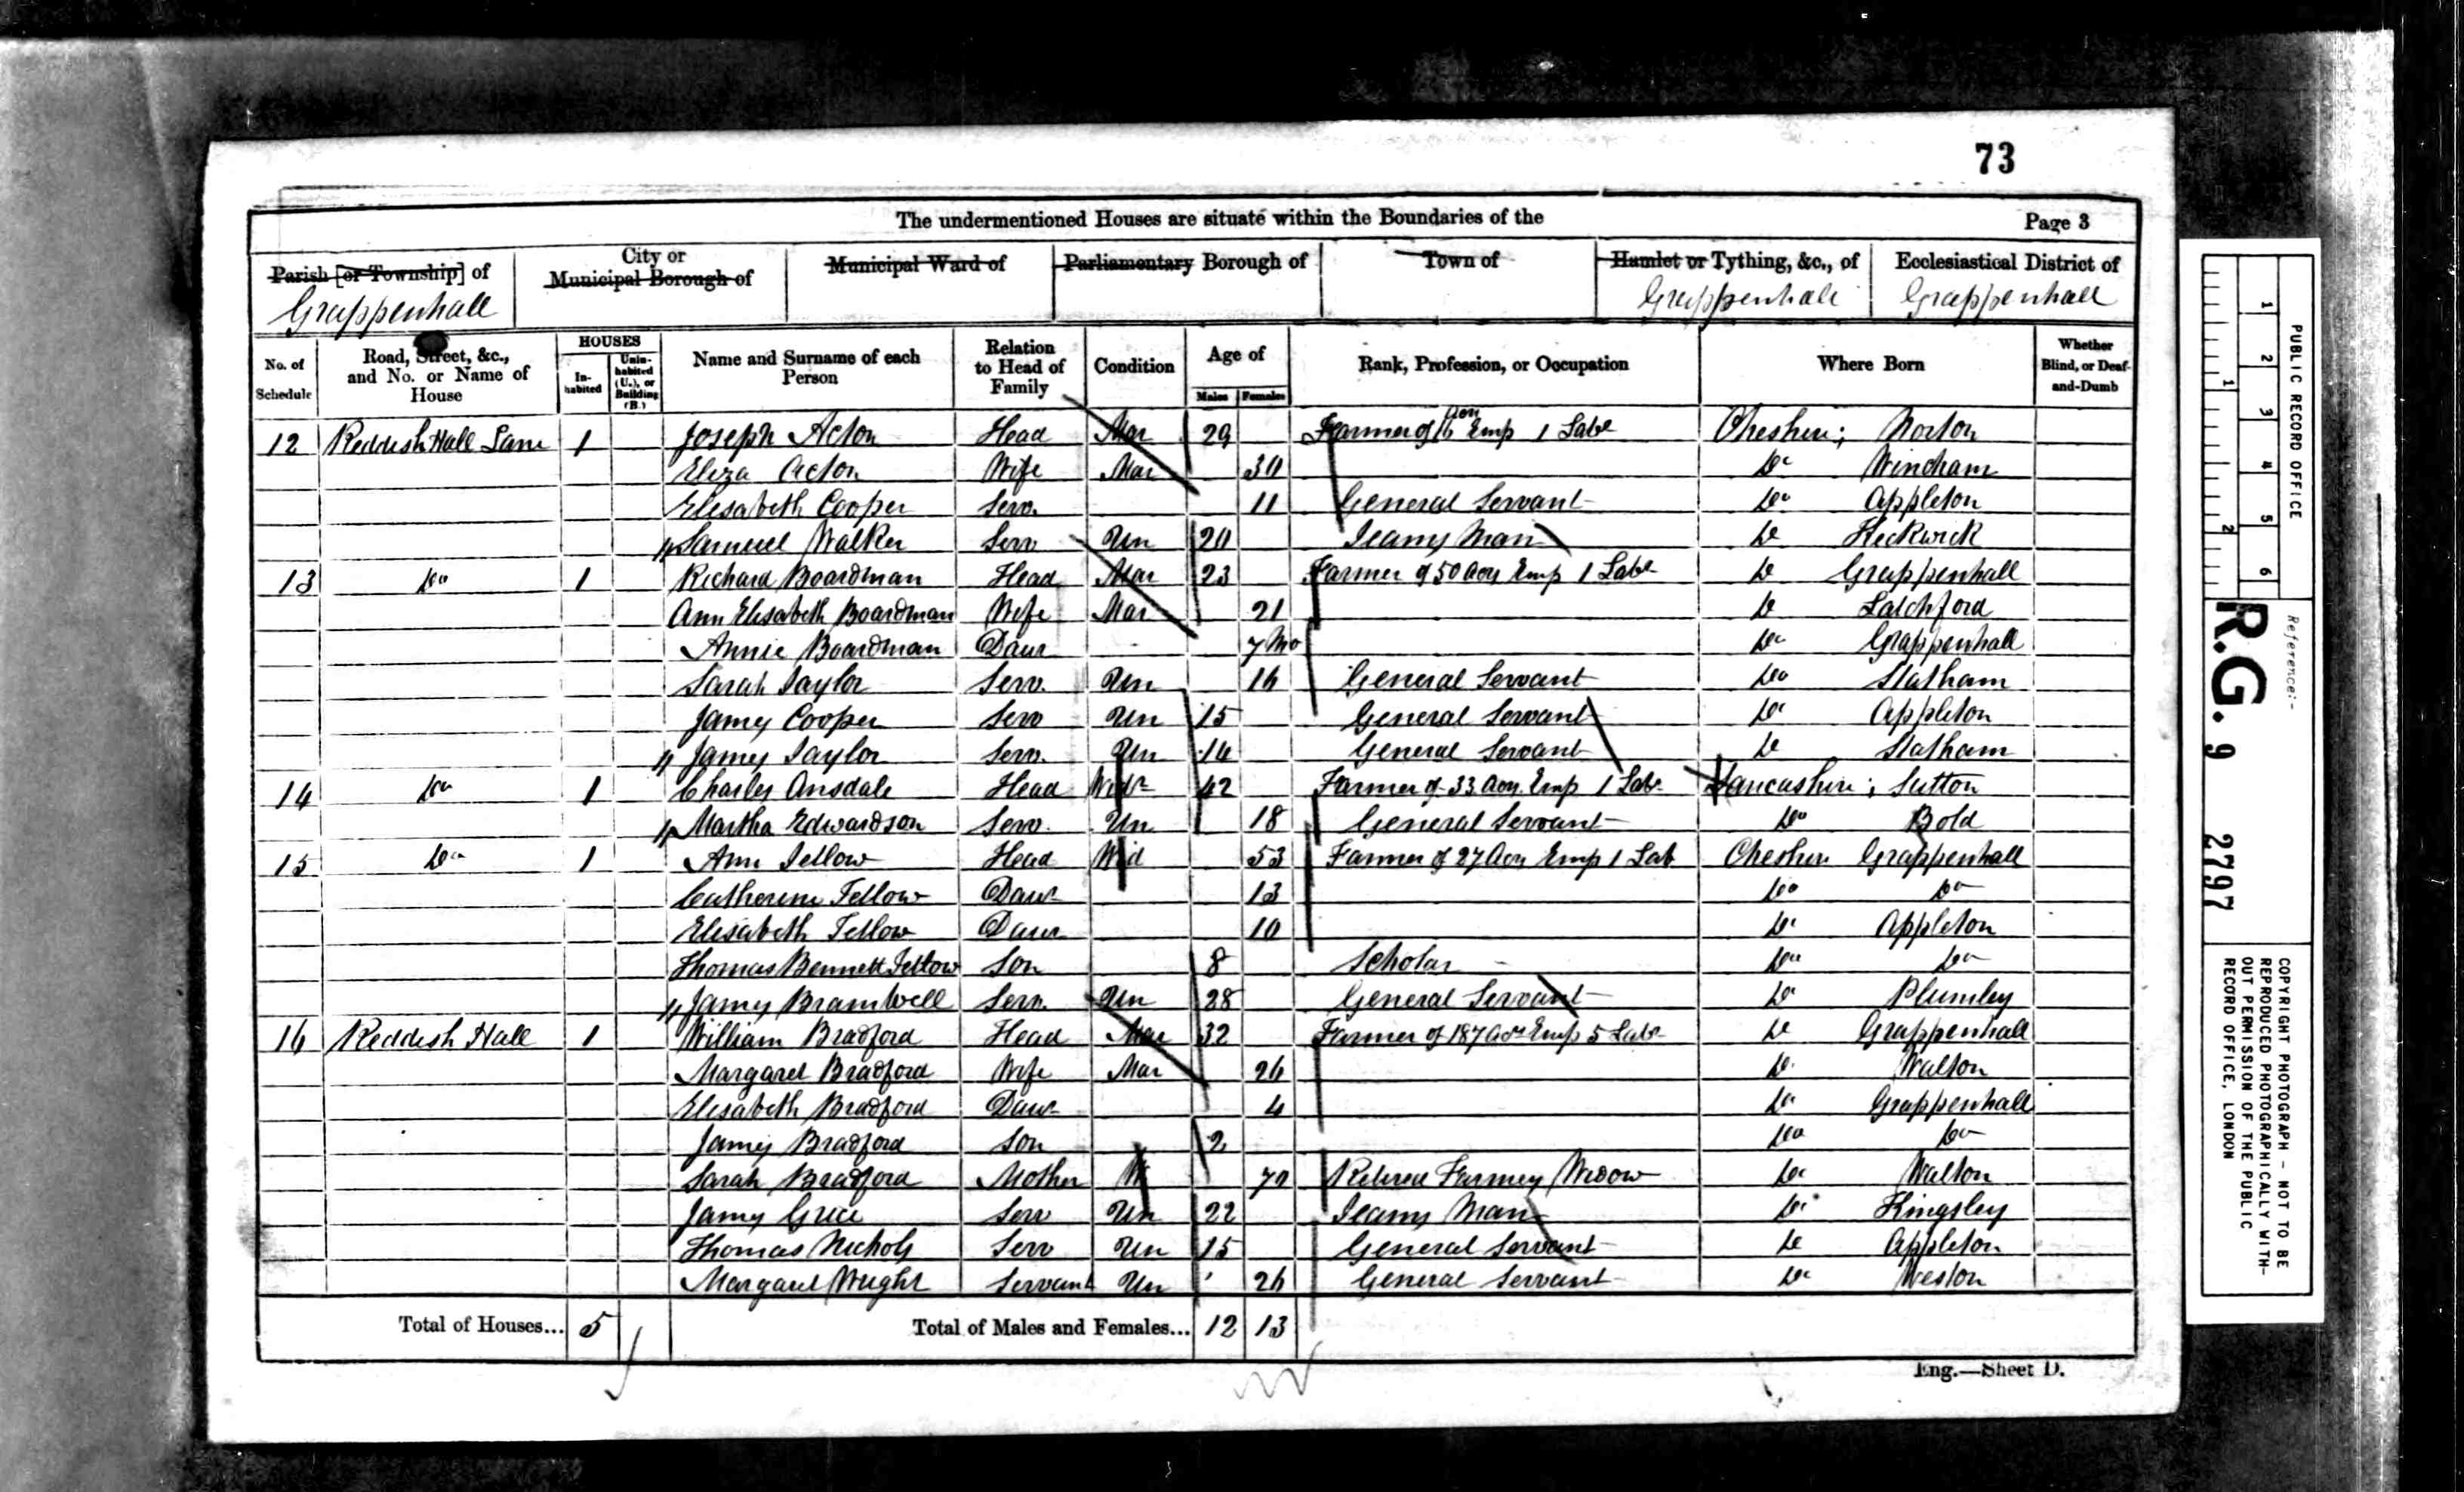 73
The undermentioned Houses are situate within the Boundaries of the Page 3
Parish [or Township] of City or Municipal Borough of Municipal Ward of Parliamentary Borough of Town of Hamlet or Tything, &c., of Ecclesiastical District of
Grappenhall Grappenhall Grappenhall
No. of Schedule Road, Street, &c., and No. or Name of House HOUSES Inhabited Uninhabited (U.), or Building (B.) Name and Surname of each Person Relation to Head of Family Condition Age of Males Females Rank, Profession, or Occupation Where Born Whether Blind, or Deaf-and-Dumb
12 Reddish Hall Lane 1 Joseph Acton Head Mar 29 Farmer of 16 Acrs Emp 1 Labr Cheshire; Norton
Eliza Acton Wife Mar 30 Do Wincham
Elisabeth Cooper Serv. 11 General Servant Do Appleton
Samuel Walker Serv Un 20 Teams Man Do
13 Do 1 Richard Boardman Head Mar 23 Farmer of 50 Acrs Emp 1 Labr Do Grappenhall
Ann Elisabeth Boardman Wife Mar 21 Do Latchford
Annie Boardman Daur 7 Mo Do Grappenhall
Sarah Taylor Serv. Un 16 General Servant Do Statham
James Cooper Serv Un 15 General Servant Do Appleton
James Taylor Serv. Un 14 General Servant Do Statham
14 Do 1 Charles Ansdale Head Widr 42 Farmer of 33 Acrs Emp 1 Labr Lancashire; Sutton
Martha Edwardson Serv. Un 18 General Servant Do Bold
15 Do 1 Ann Tellow Head Wid 53 Farmer of 27 Acrs Emp 1 Lab Cheshire Grappenhall
Catherine Tellow Daur 13 Do Do
Elisabeth Tellow Daur 10 Do Appleton
Thomas Bennett Tellow Son 8 Scholar Do Do
James Bramwell Serv. Un 28 General Servant Do Plumley
16 Reddish Hall 1 William Bradford Head Mar 32 Farmer of 187 Acrs Emp 5 Labr Do Grappenhall
Margaret Bradford Wife Mar 26 Do Walton
Elisabeth Bradford Daur 4 Do Grappenhall
James Bradford Son 2 Do Do
Sarah Bradford Mother W 70 Retired Farmers Widow Do Walton
James Grice Serv Un 22 Teams Man Do Kingsley
Thomas Nichols Serv Un 15 General Servant Do Appleton
Margaret Wright Servant Un 26 General Servant Do Weston
Total of Houses... 5 Total of Males and Females... 12 13
Eng.—Sheet D.
1 2 3 4 5 6
1 2
PUBLIC RECORD OFFICE
Reference:-
R.G. 9 2797
COPYRIGHT PHOTOGRAPH - NOT TO BE
REPRODUCED PHOTOGRAPHICALLY WITH-
OUT PERMISSION OF THE PUBLIC
RECORD OFFICE, LONDON